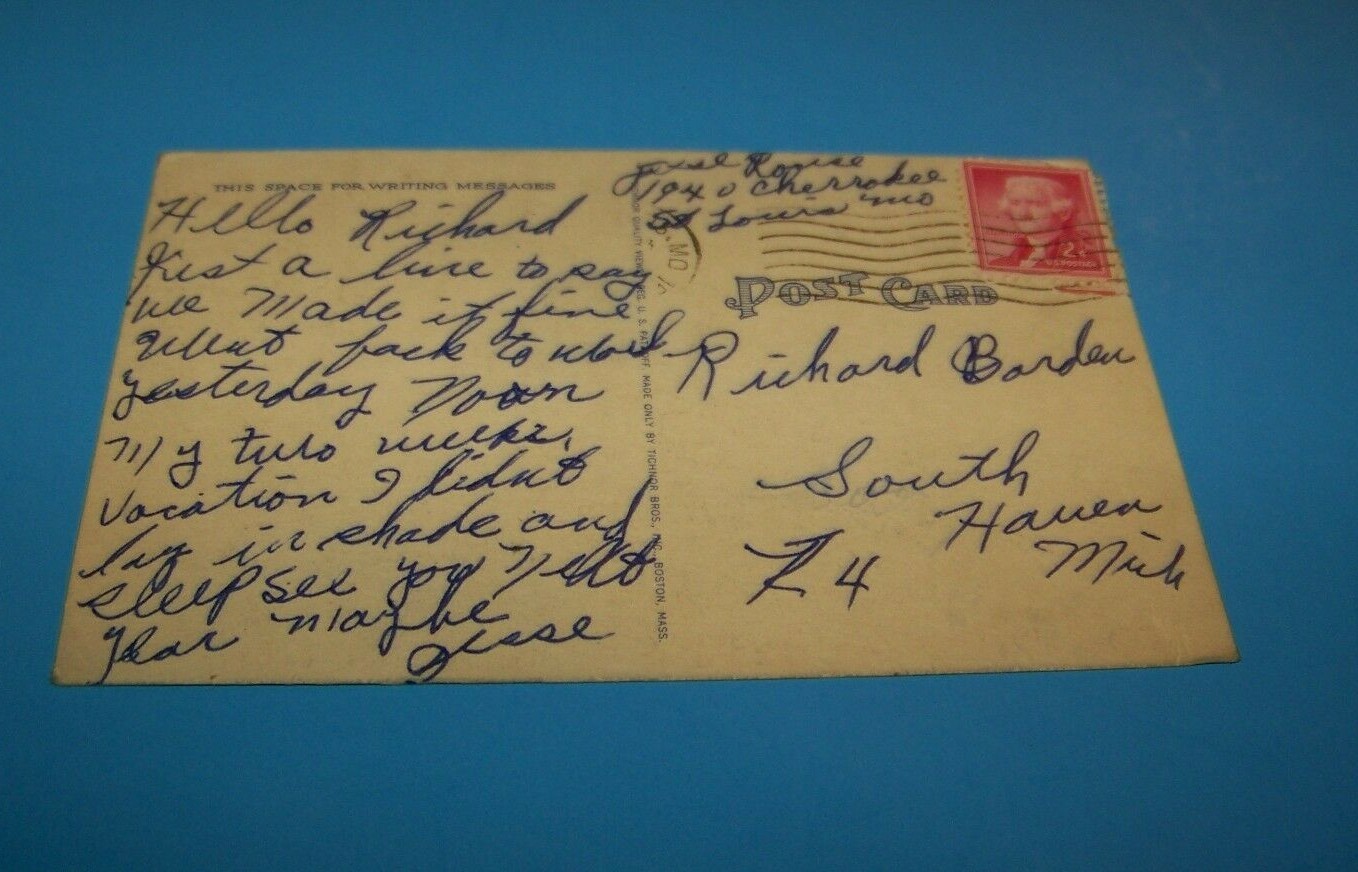 THIS SPACE FOR WRITING MESSAGES
Hello Richard
Just a line to say
we made it fine
Went back to work
yesterday noon
My two weeks
vacation I didnt
lay in shade and
sleep See you next
year maybe
Jesse
Jesse Rouse
1940 Cherrokee
St Louis Mo
MO
2¢
U.S. POSTAGE
POST CARD
Richard Barden
South
Haven
Mich
MADE ONLY BY TICHNOR BROS., INC. BOSTON, MASS.